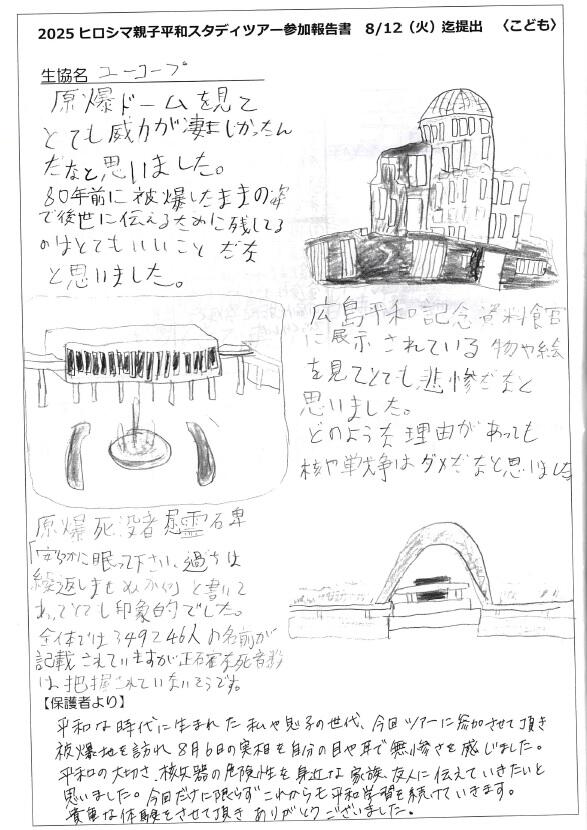 2025 ヒロシマ親子平和スタディツアー参加報告書　8/12（火）迄提出　〈こども〉
生協名 ユーコープ
原爆ドームを見て
とても威力が凄まじかったん
だなと思いました。
80年前に被爆したままの姿
で後世に伝えるために残してる
のはとてもいいことだな
と思いました。
広島平和記念資料館
に展示されている物や絵
を見てとても悲惨だなと
思いました。
どのような理由があっても
核や戦争はダメだなと思いました
原爆死没者慰霊石卑
「安らかに眠って下さい、過ちは
繰返しませぬから」と書いて
あってとても印象的でした。
全体では349246人の名前が
記載されていますが正確な死者数
は把握されていないそうです。
【保護者より】
平和な時代に生まれた私や息子の世代、今回ツアーに参加させて頂き
被爆地を訪れ8月6日の実相を自分の目や耳で無惨さを感じました。
平和の大切さ、核兵器の危険性を身近な家族、友人に伝えていきたいと
思いました。今回だけに限らずこれからも平和学習を続けていきます。
貴重な体験をさせて頂きありがとうございました。